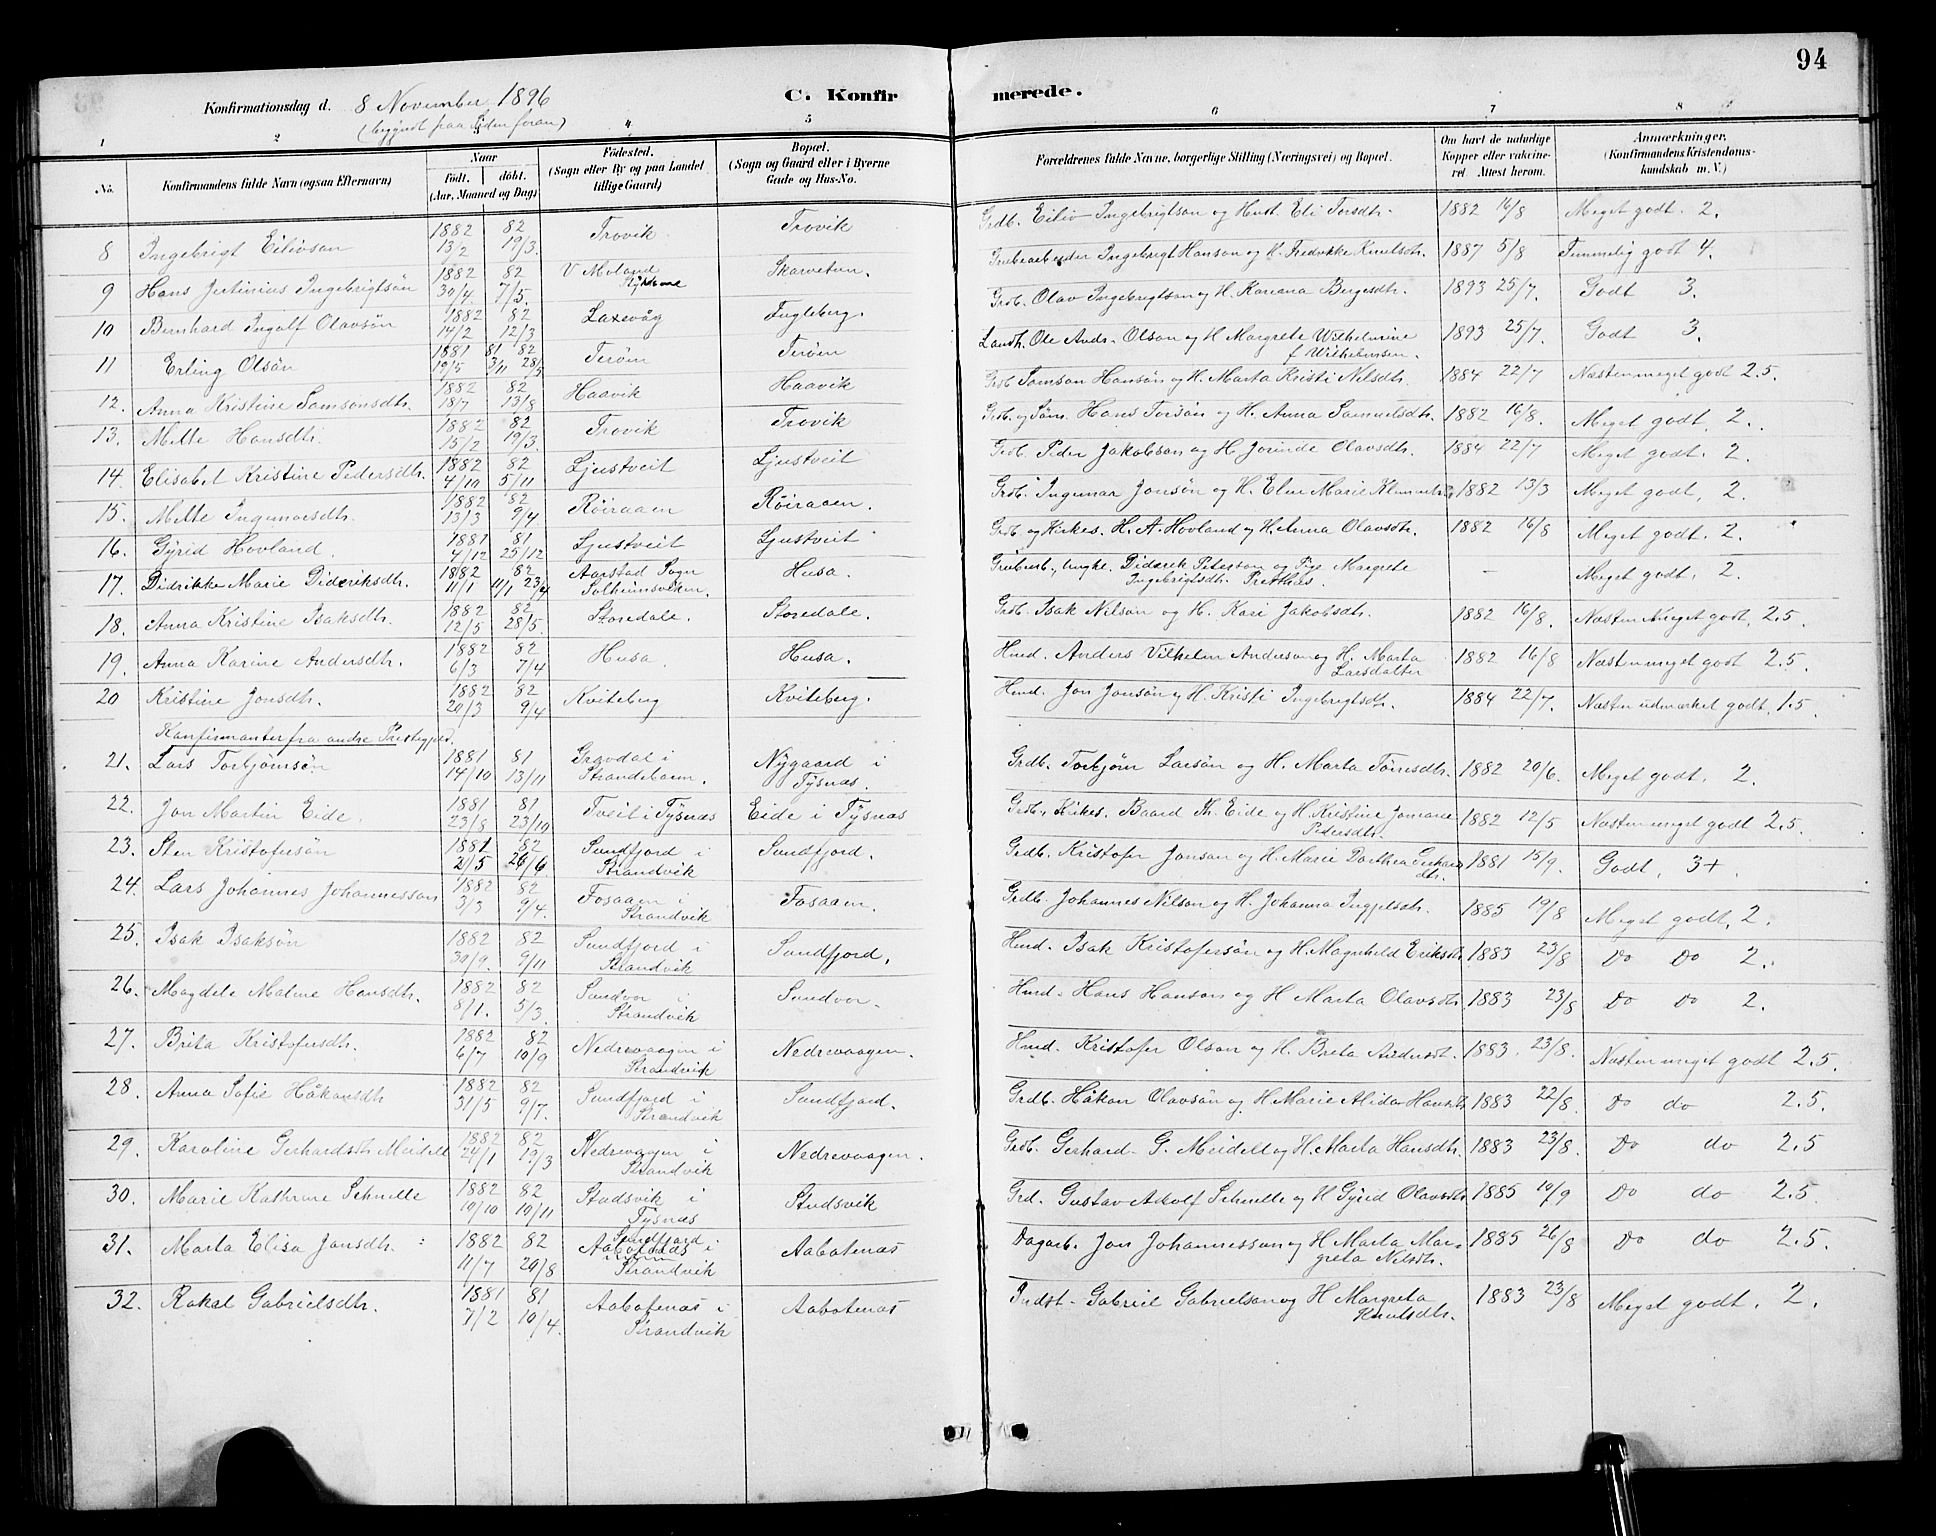 94
Konfirmationsdag d. 8 November 1896 C. Konfirmerede.
(begyndt paa siden foran)
1 2 3 4 5 6 7 8
No. Konfirmandens fulde Navn (ogsaa Efternavn) Naar født. døbt. (Aar, Maaned og Dag) Fødested. (Sogn eller By og paa Landet tillige Gaard) Bopæl. (Sogn og Gaard eller i Byerne Gade og Hus-No. Forældrenes fulde Navne, borgerlige Stilling (Næringsvei) og Bopæl. Om havt de naturlige Kopper eller vakcineret. Attest herom. Anmærkninger. (Konfirmandens Kristendomskundskab m. V.)
8 Ingebrigt Eilivson 1882 13/2 82 19/3 Trovik Trovik Grdb. Eiliv Ingebrigtson og Hust. Eli Torsdtr. 1882 16/8 Meget godt. 2.
9 Hans Justinius Ingebrigtsøn 1882 30/4 82 7/5. V Moland Skarvetun. Grubearbeider Ingebrigt Hanson og H. Fredrikke Knutsdtr. 1887 5/8 Temmelig godt 4.
10 Bernhard Ingolf Olavsøn 1882 14/2 82 12/3 Laxevåg Fugleberg. Grdb. Olav Ingebrigtson og H. Kariana Bergesdtr. 1893 25/7. Godt 3.
11 Erling Olsøn 1881 19/5 81 3/11 82 28/5 Terøen Terøen Landh. Ole Andr. Olson og H Margrete Wilhelmine f Wilhelmsen. 1893 25/7. Godt 3.
12. Anna Kristine Samsonsdtr. 1882 18/7 82 13/8 Haavik Haavik Grdb Samson Hansøn og H. Marta Kristi Nilsdtr. 1884 22/7 Næsten meget godt 2.5.
13. Mette Hansdtr. 1882 15/2 82 19/3. Trovik Trovik Grdb. og Søm. Hans Torsøn og H. Anna Samuelsdtr. 1882 16/8. Meget godt, 2.
14. Elisabet Kristine Pedersdtr. 1882 4/10 82 5/11 Ljustveit Ljustveit Grdb. Peder Jakobson og H. Jorinde Olavsdtr. 1884 22/7 Meget godt. 2.
15. Mette Ingemarsdtr. 1882 13/3 82 9/4 Røiraaen Røiraaen. Grdb. Ingemar Jonsøn og H. Elen Marie 1882 13/3 Meget godt, 2.
16. Gyrid Hovland. 1881 4/12 81 25/12 Ljustveit Ljustveit Grdb og Kirkes. H. A. Hovland og H. Anna Olavsdtr. 1882 16/8 Meget godt. 2.
17. Didrikke Marie Dideriksdtr. 1882 11/1 82 11/1 23/4 Aarstad Sogn Solheimsviken. Husa. Grubearb., Ungk. Diderik Peterson og Pige Margrete Ingebrigtsdtr. – Meget godt. 2.
18. Anna Kristine Isaksdtr. 1882 12/5 82 28/5. Storedale. Storedale. Grdb. Isak Nilsøn og H. Kari Jakobsdtr. 1882 16/8. Næsten Meget godt, 2.5
19. Anna Karine Andersdtr. 1882 6/3 82 7/4 Husa. Husa. Hmd. Anders Vilhelm Anderson og H. Marta Larsdatter 1882 16/8 Næsten meget godt 2.5.
20 Kristine Jonsdtr. 1882 20/3 82 9/4 Kviteberg Kviteberg. Hmd. Jon Jonsøn og H. Kristi Ingebrigtsdtr. 1884 22/7. Næsten udmærket godt, 1.5.
Konfirmanter fra andre Prestegjeld.
21. Lars Torbjørnsøn 1881 14/10 81 13/11 Gravdal i Strandebarm. Nygaard i Tysnæs. Grdb. Torbjørn Larsøn og H. Marta Tørresdtr. 1882 20/6. Meget godt. 2.
22. Jon Martin Eide. 1881 23/8 81 23/10 Tveit i Tysnæs Eide i Tysnæs Grdb., Kirkes. Baard Th. Eide og H. Kristine Jomane Pedersdtr. 1882 12/5 Næsten meget godt 2.5.
23. Sten Kristofersøn 1882 2/5 82 26/6 Sundfjord i Strandvik Sundfjord. Grdb. Kristofer Jonsøn og H. Marie Dorthea Gerhardsdtr. 1881 15/9. Godt, 3+.
24. Lars Johannes Johannesson 1882 3/3 82 9/4. Fosaaen i Strandvik Fosaaen. Grdb. Johannes Nilson og H. Johanna 1885 19/8 Meget godt, 2.
25. Isak Isaksøn 1882 30/9. 82 9/11 Sundfjord i Strandvik Sundfjord. Hmd. Isak Kristofersøn og H. Magnhild Eriksdtr 1883 23/8 Do Do 2.
26. Magdele Malene Hansdtr. 1882 8/1. 82 5/3. Sundvor i Strandvik Sundvor. Hmd. Hans Hanson og H Marta Olavsdtr 1883 23/8 Do Do 2.
27. Brita Kristofersdtr. 1882 6/7 82 10/9 Nedrevaagen i Strandvik Nedrevaagen. Hmd. Kristofer Olson og H. Breta Andersdt. 1883. 23/8. Næsten meget godt 2.5.
28. Anna Sofie Håkonsdtr 1882 31/5 82 9/7. Sundfjord i Strandvik Sundfjord. Grdb. Håkon Olavsøn og H. Marie Alida Hansdtr 1883 22/8. Do do 2.5.
29. Karoline Gerhardsdtr Meidell 1882 24/1 82 19/3 Nedrevaagen i Strandvik Nedrevaagen. Grdb. Gerhard G. Meidell og H. Marta Hansdtr. 1883 23/8. Do do 2.5
30. Marie Kathrine Schnelle 1882 10/10 82 10/11 Studsvik i Tysnæs Studsvik Grd. Gustav Adolf Schnelle og H Gyrid Olavsdtr 1885 10/9 Do do 2.5
31. Marta Elisa Jonsdtr. 1882 11/7 82 20/8 Aabotenæs i Strandvik Aabotenæs Dagarb. Jon Johannesson og H Marta Margreta Nilsdtr. 1885 26/8 Do do 2.5.
32. Rakel Gabrielsdtr. 1881 7/2 81 10/4. Aabotenæs i Strandvik Aabotenæs Indst. Gabriel Gabrielson og H Margreta Knutsdtr. 1883 23/8 Meget godt. 2.